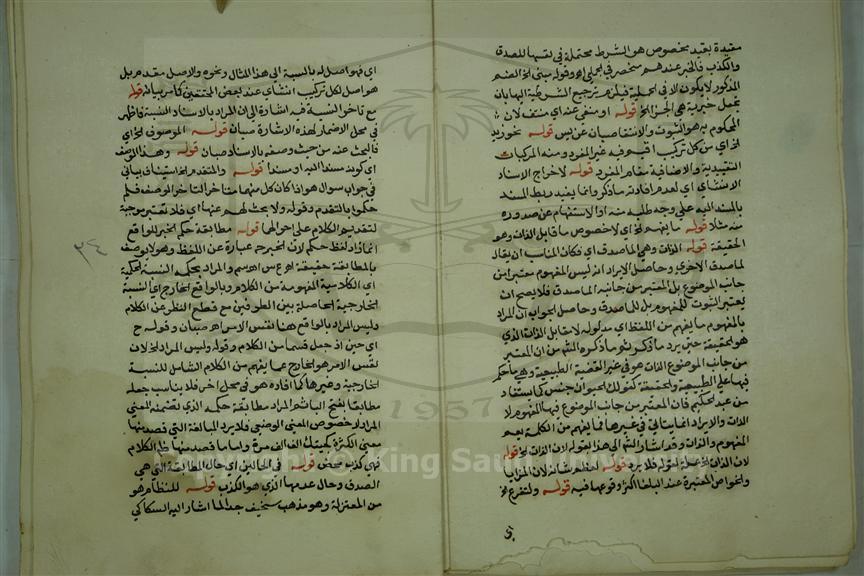 مقيدة بقيد مخصوص هو الشرط محتملة في نفسها للصدق
والكذب فالخبر عندهم منحصر في الحملي اه وقوله مبنى الخ القسم
المذكور لا يكون الا في الحملية قبل هو ترجيح الشرطية اليها بان
تجعل خبرية هي الجزا الخ قوله او منفي عنه اي منتف لان
المحكوم به هو الثبوت والانتفا صبان عن يس قوله نحو زيد
الخ اي من كل تركيب اقيم فيه غير المفرد ومنه المركبات
التقييدية والاضافية مقام المفرد قوله لاخراج الاسناد
الانشائي اي لعدم افادته ما ذكر وانما يفيد ربط المسند
بالمسند اليه على وجه طلبه منه او الاستفهام عن صدوره
منه مثلا قوله ما يفهم الخ اي لا خصوص ما قابل الذات وهو
الحقيقة قوله الذات وهي الماصدق اي فكان المناسب ان يقال
لماصدق الاخرى وحاصل الايراد انه ليس المفهوم معتبرا من
جانب الموضوع بل المعتبر من جانبه الماصدق فلا يصح ان
يعتبر الثبوت للمفهوم بل للماصدق وحاصل الجواب ان المراد
بالمفهوم ما يفهم من اللفظ اي مدلوله لا مقابل الذات الذي
هو الحقيقة حتى يرد ما ذكر ما ذكره الش من ان المعتبر
من جانب الموضوع الذات هو في غير القضية الطبيعية وهي ما حكم
فيها على الطبيعة والحقيقة كقولك الحيوان جنس كما استفاد
من عبد الحكيم فان المعتبر من جانب الموضوع فيها المفهوم لا
الذات والايراد انما يتاتى في غيرها فما يفهم من الكلمة يعم
المفهوم والذات وقد اشار الش الى هذا بقوله لان الذات الخ قوله
لان الذات الخ علة لقوله فلا يرد قوله لعظم شانه لان المزايا
والخواص المعتبرة عند البلغا اكثر وقوعها فيه قوله ولتفرع الخ
اي فهو اصل له بالنسبة الى هذا المثال ونحوه والاصل مقدم بل
هو اصل لكل تركيب انشائي عند بعض المحققين كما مر بيانه قوله
مع تاخر النسبة فيه اشارة الى ان المراد بالاسناد النسبة فاظهر
في محل الاضمار لهذه الاشارة صبان قوله الموصوف الخ اي
فالبحث عنه من حيث وصفه بالاسناد صبان قوله وهذا الوصف
اي كونه مسندا اليه او مسندا قوله والمتقدم الخ استيناف بياني
في جواب سوال هو اذا كان كل منهما متاخر التاخر الوصف فلم
حكموا بالتقدم وقوله ولا بحث لهم عنها اي فلا تعتبر موجبة
لتقديم الكلام على احوالها قوله مطابقة حكم الخبر للواقع
انما زاد لفظ حكم لان الخبر عبارة عن اللفظ وهو لا يوصف
بالمطابقة حقيقة اه ع س اه سم والمراد بحكمه النسبة الحكمية
اي الكلامية المفهومة من الكلام وبالواقع الخارج اي النسبة
الخارجية الحاصلة بين الطرفين مع قطع النظر عن الكلام
وليس المراد بالواقع هنا نفس الامر اه صبان وقوله ح
اي حين اذ جعل قسما من الكلام وقوله وليس المراد الخ لان
نفس الامر هو الخارج عما يفهم من الكلام الشامل للنسبة
الخارجية وغيرها كما افاده هو في محل اخر فلا يناسب جعله
مطابقا بفتح الباء المراد مطابقة حكمه الذي تضمنه المعنى
المراد لا خصوص المعنى الوضعي فلا يرد المبالغة التي قصد منها
معنى الكثرة كجئتك الف الف مرة واما ما قصد منها ظاهر الكلام
فهي كذب محض قوله في الحالين اي حال المطابقة التي هي
الصدق وحال عدمها الذي هو الكذب قوله للنظام هو
من المعتزلة وهو مذهب سخيف جدا لما اشار اليه السكاكي
٢٤
1957
Copyright © King Saud University